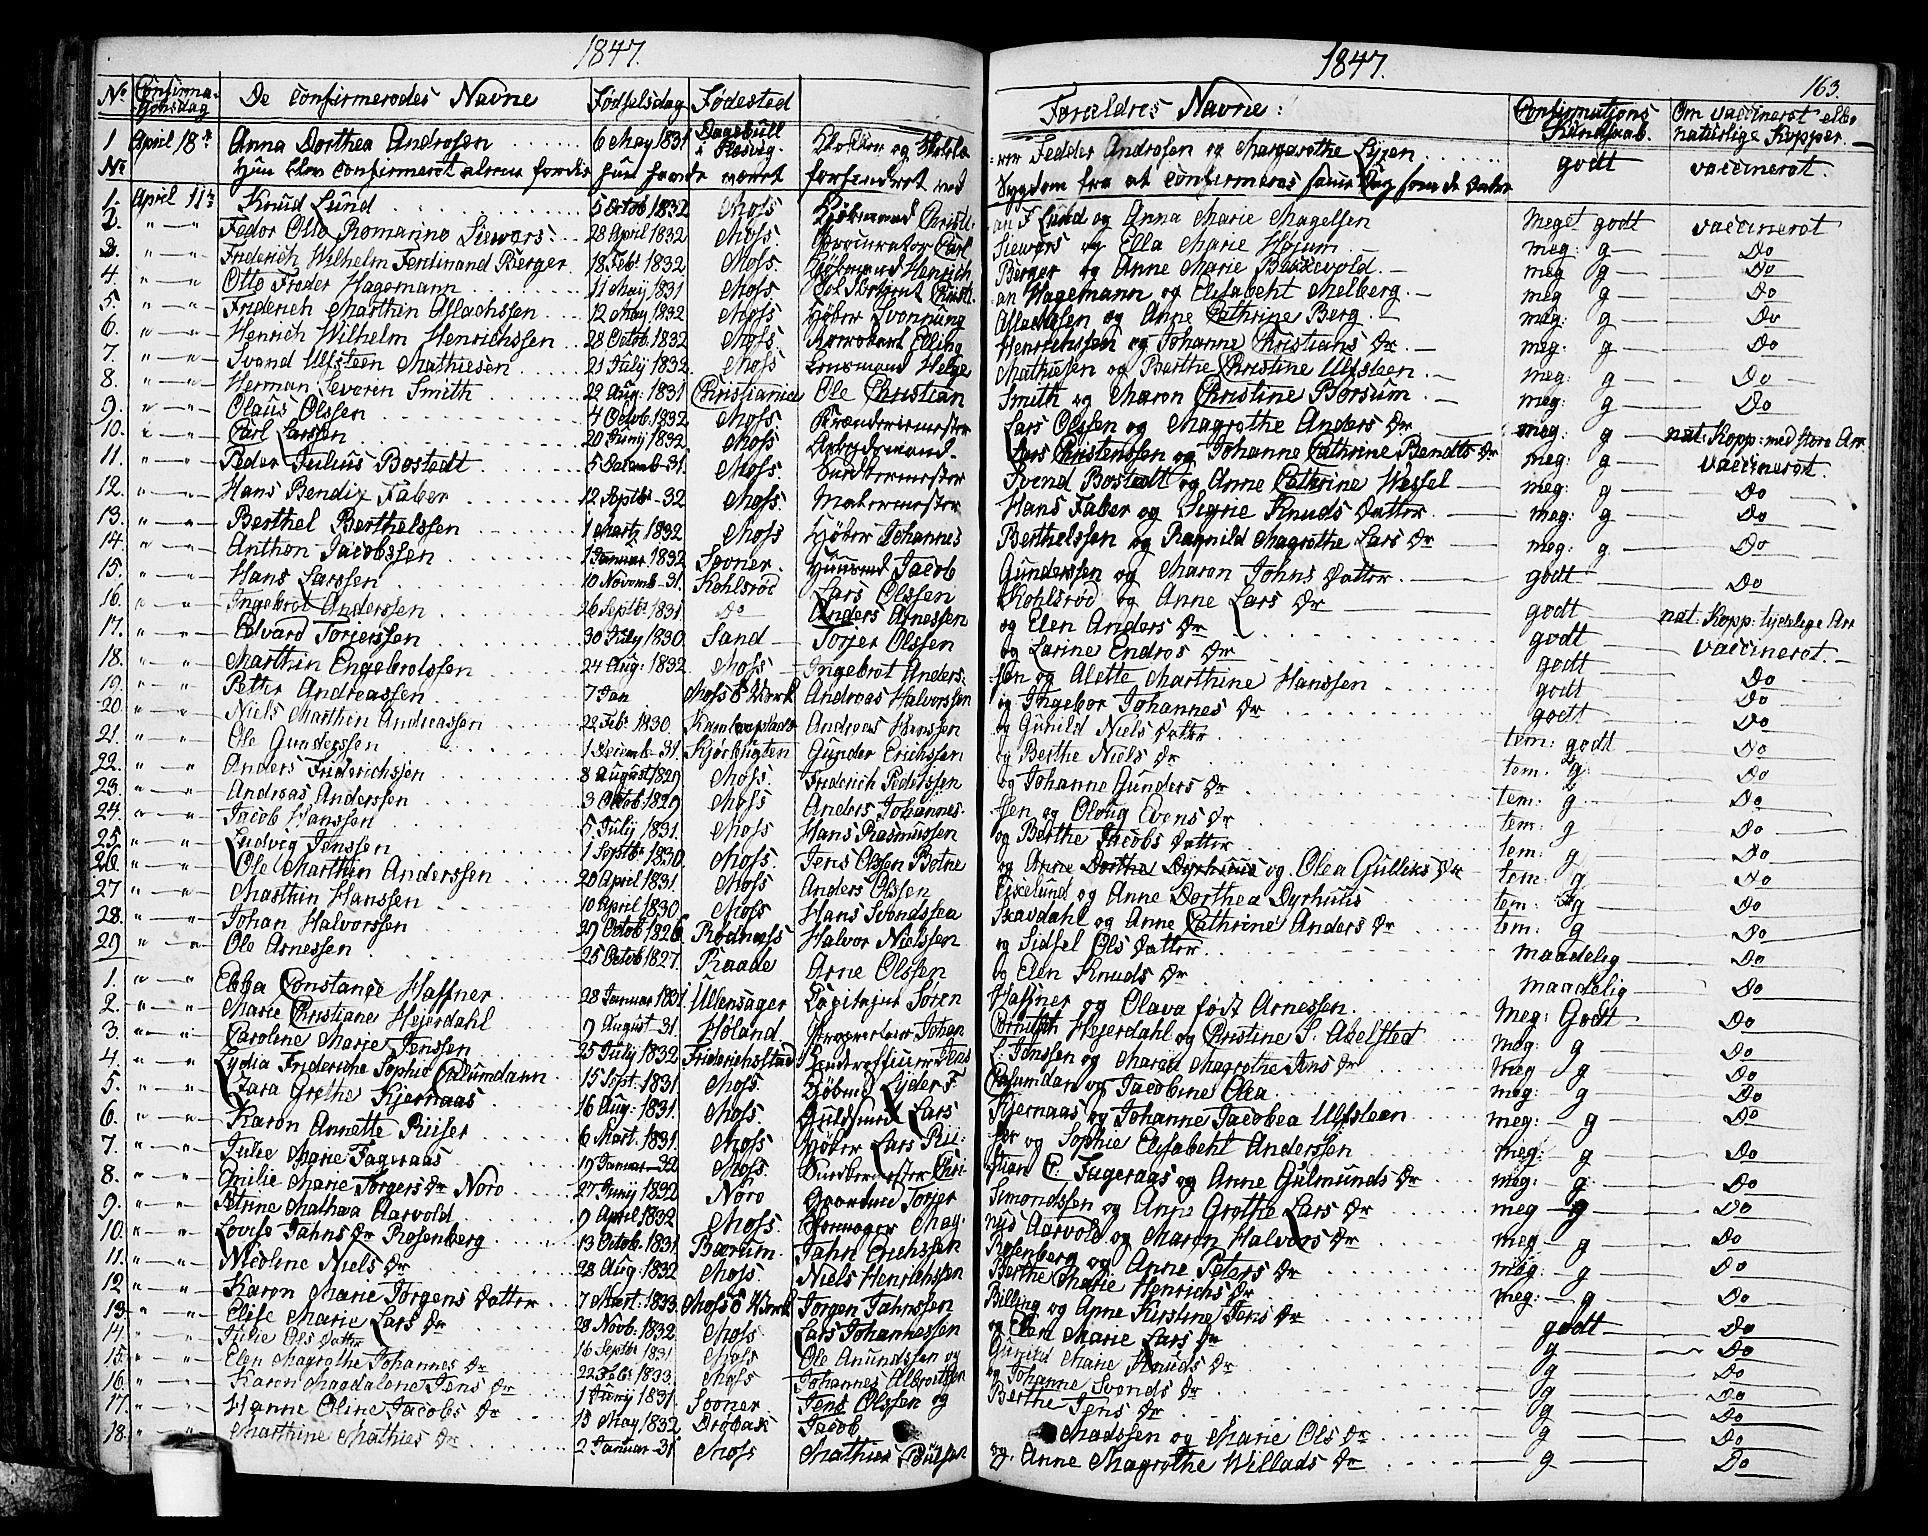 1847.
No Confirmationsdag De confirmeredes Navne Fødselsdag Fødested
1 April 18de Anna Dorthea Andresen 6 May 1831 Dagebüll i Slesvig
No Hun blev confirmeret alene fordi hun havde været forhindret ved
1. April 11te Knud Lund 5 Octob 1832 Moss Kjøbmand Christi-
2. " " Fedor Otto Romanno Siewers 28 April 1832 Moss Procurator Carl
3. " " Friderich Wilhelm Ferdinand Berger 18 Febr 1832 Moss. Kjøbmand Henrich
4. " " Otto Freder Hagemann 11 May 1831 Moss Christi-
5. " " Friderich Marthin Allachssen 12 May 1832 Moss Svennung
6. " " Henrich Wilhelm Henrichssen 28 Octob 1832 Moss Elling
7. " " Svend Ulfsteen Mathiesen 21 July 1832 Moss. Lensmand Helge
8. " " Herman Severin Smith 22 Aug: 1831 Christiania Ole Christian
9. " " Olaus Olssen 4 Octob. 1832 Moss.
10. " " Carl Larssen 20 Juny 1832 Moss. Arbeidsmand
11. " " Peder Julius Bostedt 5 Decemb-31. Moss.
12. " " Hans Bendix Faber 12 Septbr-32 Moss. Malermester
13. " " Berthel Berthelssen 1 Marts 1832 Moss Johannes
14. " " Anthon Jacobssen 1 Januar 1832 Sooner. Huusmd Jacob
15. " " Hans Larssen 10 Novemb-31. Kohlsrød Lars Olssen
16. " " Ingebret Anderssen 26 Septbr 1831 Do Anders Arnessen
17. " " Edvard Torjerssen 30 July 1830. Sand Torjer Olssen
18. " " Marthin Engebretssen 24 Aug: 1832 Moss Ingebret Anders-
19. " " Petter Andreassen 7 Jan Moss Værk Andreas Halvorssen
20. " " Niels Marthin Andreassen 22 Febr 1830. Andreas Hanssen
21. " " Ole Gunderssen 1 Decemb-31. Gunder Erichssen
22. " " Anders Friderichssen 8 August 1829 Moss. Friderich Pederssen
23. " " Andreas Anderssen 3 Octob 1829 Moss. Anders Johannes-
24. " " Jacob Hanssen 5 July 1831. Moss Hans Rasmussen
25. " " Ludvig Jenssen 1 Septbr 1830. Moss. Jens Olssen Botne
26. " " Ole Marthin Anderssen 20 April 1831. Moss Anders Olssen
27. " " Marthin Hanssen 10 April 1830 Moss Hans Svendssen
28. " " Johan Halvorssen 29 Octob 1826 Rødnæss Halvor Nielssen
29. " " Ole Arnessen 25 Octob 1827. Raade Arne Olssen
1. " " Ebba Constance Haffner 28 Januar 1831 Ullensager Capitajn Søren
2. " " Marie Christiane Hejerdahl 9 August-31. Høland Johan
3. " " Caroline Marie Jenssen 25 July 1832 Friderichsstad Jens
4. " " Lydia Frideriche Sophie Calumdann 15 Sept: 1831 Moss. Kjøbmd Lyder F
5. " " Zara Grethe Kjernaas 16 Aug: 1831. Moss. Lars
6. " " Karen Annette Riiser 6 Mart. 1831. Moss. Lars Rii-
7. " " Julie Marie Fageraas 19 Januar-32 Moss. Chri-
8. " " Emilie Marie Torgers Dr Nøro 27 Juny 1832 Nøro Gaardmd Torjer
9. " " Petrine Mathea Aarvold 9 April 1832 Moss. Mag-
10. " " Lovise Jahns Dr Rosenberg 13 Octob. 1831. Bærum. Jahn Erichssen
11. " " Nicoline Niels Dr 28 Aug: 1832 Moss. Niels Henrichssen
12 " " Karen Marie Jørgens Datter 7 Mart: 1833. Moss Værk Jørgen Jahnssen
13. " " Elise Marie Lars Dr 28 Novb: 1832 Moss. Lars Johannessen
14. " " Julie Ols Datter 16 Septbr 1831 Moss Ole Anundssen og
15. " " Elen Magrethe Johannes Dr 22 Febr 1833. Moss Johannes
16. " " Karen Magdalene Jens Dr 1 Juny 1831 Sooner Jens Olssen og
17. " " Hanne Oline Jacobs Dr 15 May 1832 Drøbak Jacob
18. " " Marthine Mathies Dr 2 Januar-31 Moss Mathies
1847. 163.
Forældres Navne: Confirmations Kundskab. Om vaccineret eller naturlige Kopper
Fedder Andresen og Margarethe godt vaccineret.
Sygdom fra at confirmeres samme Dag som de andre
an F Lund og Anna Marie Magelsen Meget godt vaccineret
Siewers og Ella Marie Hojum. meg: g Do
Berger og Anne Marie meg g Do
an Hagemann og Elisabeht Melberg. meg g Do
Allachssen og Anne Cathrine Berg. meg: g Do
Henrichssen og Johanne Christians Dr. meg: g Do
Mathiesen og Berthe Christine Ulfsteen. meg: g Do
Smith og Maren Christine Borsum. meg: g Do
Lars Olssen og Magrethe Anders Dr meg: g nat: Kopp: med store Arr
Lars Christenssen og Johanne Cathrine Bendts Dr meg: g vaccineret.
Svend Bostedt og Anne Cathrine Wessel meg: g Do
Hans Faber og Signe Knuds Datter meg: g Do
Berthelssen og Ragnild Magrethe Lars Dr meg: g Do
Gunderssen og Maren Johns Datter. godt Do
Kohlsrød og Anne Lars Dr godt nat: Kopp: tydelige Arr
og Elen Anders Dr godt vaccineret.
og Larine Endres Dr godt Do
sen og Alette Marthine Hanssen godt Do
og Ingebor Johannes Dr godt Do
og Gunild Niels Datter tem: godt Do
og Berthe Niels Dr tem: g Do
og Johanne Gunders Dr tem: g Do
sen og Oloug Evens Dr tem: g Do
og Berthe Jacobs Datter tem: g Do
og Anne Dorthe Dyrhuus og Olea Gulliks Dr tem: g Do
Eskelund og Anne Dorthea Dyrhuus tem: g Do
Skavdahl og Anne Cathrine Anders Dr tem: g Do
og Sidsel Ols Datter maadelig Do
og Elen Knuds Dr maadelig Do
Haffner og Olava født Arnessen Meg: Godt Do
Hejerdahl og Christine S. Abelsted meg: g Do
L. Jenssen og Maren Magrethe Jens Dr meg g Do
Calumdan og Jacobine Olea meg: g Do
Kjernaas og Johanne Jacobea Ulfsteen meg: g Do
ser og Sophie Elisabeht Anderssen meg: g Do
stian C. Fageraas og Anne Gulmunds Dr meg: g Do
Simondssen og Anne Grethe Lars Dr meg g Do
nus Aarvold og Maren Halvors Dr meg g Do
Rosenberg og Anne Peters Dr meg: g Do
Berthe Marie Henrichs Dr meg: g Do
Billing og Anne Kirstine Jens Dr godt Do
og Elen Marie Lars Dr g Do
Gunild Marie Knuds Dr g Do
og Johanne Svends Dr g Do
Berthe Jens Dr g Do
Madssen og Marie Ols Dr g Do
og Anne Magrethe Willads Dr g Do